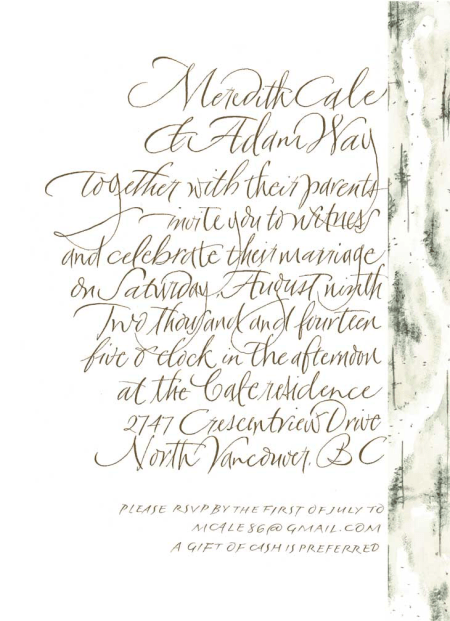 Meredith Cale
& Adam Way
together with their parents
invite you to witness
and celebrate their marriage
on Saturday, August ninth
Two thousand and fourteen
five o'clock in the afternoon
at the Cale residence
2747 Crescentview Drive
North Vancouver, BC
PLEASE RSVP BY THE FIRST OF JULY TO
MCALE86@GMAIL.COM
A GIFT OF CASH IS PREFERRED